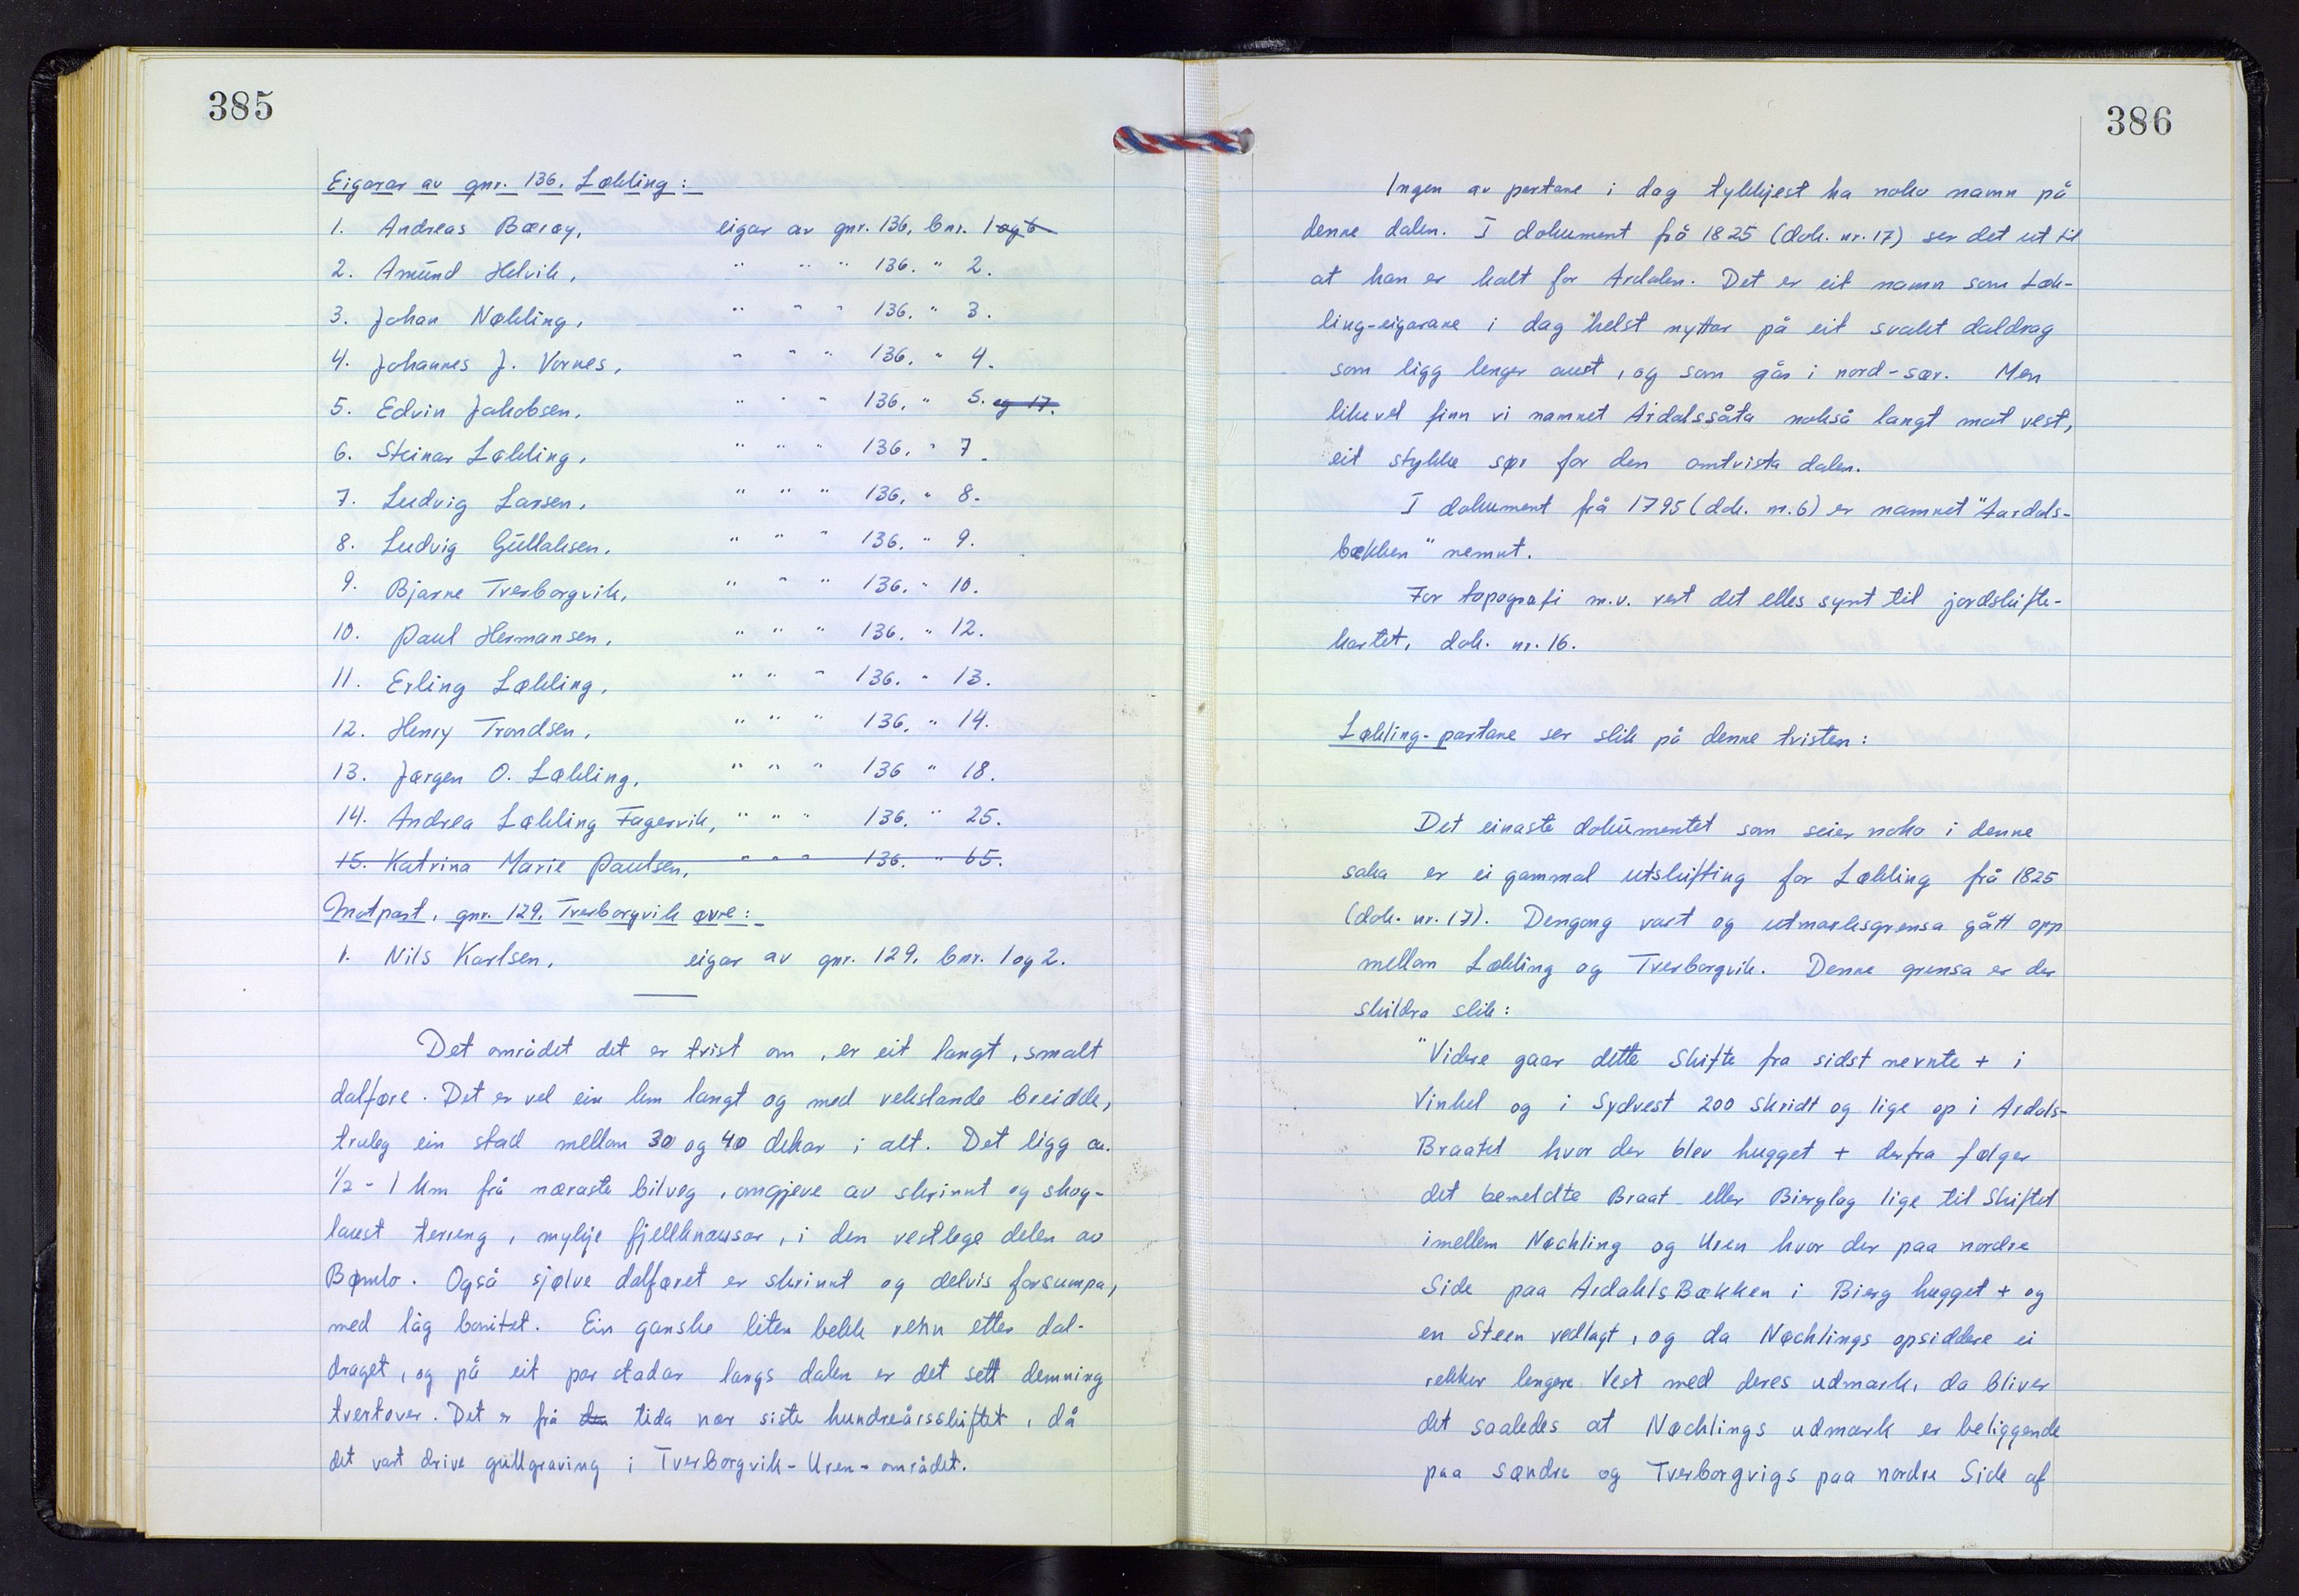 385
Eigarar av gnr. 136. Løkling:
1. Andreas Børøy, eigar av gnr. 136, bnr. 1 og 6
2. Amund Helvik, " " " 136. " 2.
3. Johan Nøkling, " " " 136. " 3.
4. Johannes J. Vornes, " " " 136. " 4.
5. Edvin Jakobsen, " " " 136. " 5. og 17.
6. Steinar Løkling, " " " 136. " 7.
7. Ludvig Larsen, " " " 136. " 8.
8. Ludvig Gullaksen, " " " 136. " 9.
9. Bjarne Tverborgvik, " " " 136. " 10.
10. Paul Hermansen, " " " 136. " 12.
11. Erling Løkling, " " " 136. " 13.
12. Henry Trondsen, " " " 136. " 14.
13. Jørgen O. Løkling, " " " 136 " 18.
14. Andrea Løkling Fagervik, " " " 136. " 25.
15. Katrina Marie Paulsen, " " " 136. " 65.
Motpart, gnr. 129. Tverborgvik øvre:
1. Nils Karlsen, eigar av gnr. 129. bnr. 1 og 2.
Det området det er trist om, er eit langt, smalt
dalføre. Det er vel ein km langt og med vekslande breidde,
truleg ein stad mellom 30 og 40 dekar i alt. Det ligg ca.
1/2 - 1 km frå næraste bilveg, omgjeve av skrinnt og skog-
laust terreng, mykje fjellknausar, i den vestlege delen av
Bømlo. Også sjølve dalføret er skrinnt og delvis forsumpa,
med låg bonitet. Ein ganske liten bekk renn etter dal-
draget, og på eit par stadar langs dalen er det sett demning
tvertover. Det er frå den tida nær siste hundreårsskiftet, då
det vart drive gullgraving i Tverborgvik-Uren-området.
386
Ingen av partane i dag tykkjest ha noko namn på
denne dalen. I dokument frå 1825 (dok. nr. 17) ser det ut til
at han er kalt for Ardalen. Det er eit namn som Løk-
ling-eigarane i dag helst nyttar på eit svakt daldrag
som ligg lenger aust, og som går i nord-sør. Men
likevel finn vi namnet Ardalssåta nokså langt mot vest,
eit stykke sør for den omtvista dalen.
I dokument frå 1795 (dok. nr. 6) er namnet "Aardals-
bækken" nemnt.
For topografi m.v. vert det elles synt til jordskifte-
kartet, dok. nr. 16.
Løkling-partane ser slik på denne tvisten:
Det einaste dokumentet som seier noko i denne
saka er ei gammal utskifting for Løkling frå 1825
(dok. nr. 17). Dengong vart og utmarksgrensa gått opp
mellom Løkling og Tverborgvik. Denne grensa er der
skildra slik:
"Videre gaar dette Skifte fra sidst nevnte + i
Vinkel og i Sydvest 200 Skridt og lige op i Ardals-
Braatet hvor der blev hugget + derfra følger
det bemeldte Braat eller Bierglag lige til Skiftet
imellem Nøchling og Uren hvor der paa nordre
Side paa ArdahlsBækken i Bierg hugget + og
en Steen vedlagt, og da Nøchlings opsiddere ei
rekker lengere Vest med deres udmark, da bliver
det saaledes at Nøchlings udmark er beliggende
paa søndre og Tverborgvigs paa nordre Side af